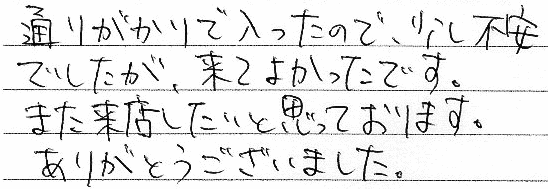 通りがかりで入ったので、少し不安
でしたが、来てよかったです。
また来店したいと思っております。
ありがとうございました。